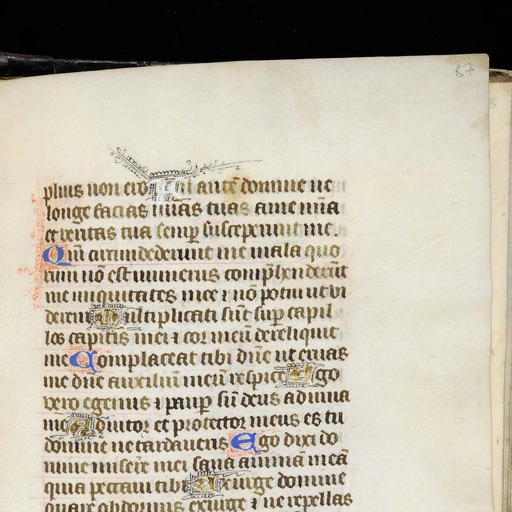 87
plius non ero Tu autē domine ne
longe facias mias tuas a me mīa
et veritas tua semp susceperunt me.
Qm̄ circumdederunt me mala quo
rum nō est numerus comp̄hendert̄
me iniquitates mee ⁊ nō potui ut vi
derem Multiplicati sūt sup capil
los capitis mei ⁊ cor meū dereliquit
me Complaceat tibi dn̄e ut eruas
me dn̄e ad auxiliū meū respice Ego
vero egenus ⁊ paup sū deus adiuva
me Adiutor et protector meus es tu
domine ne tardaveris Ego dixi do
mine misere mei sana animā meā
quia peccavi tibi Exurge domine
quare obdormis exurge ⁊ ne repellas